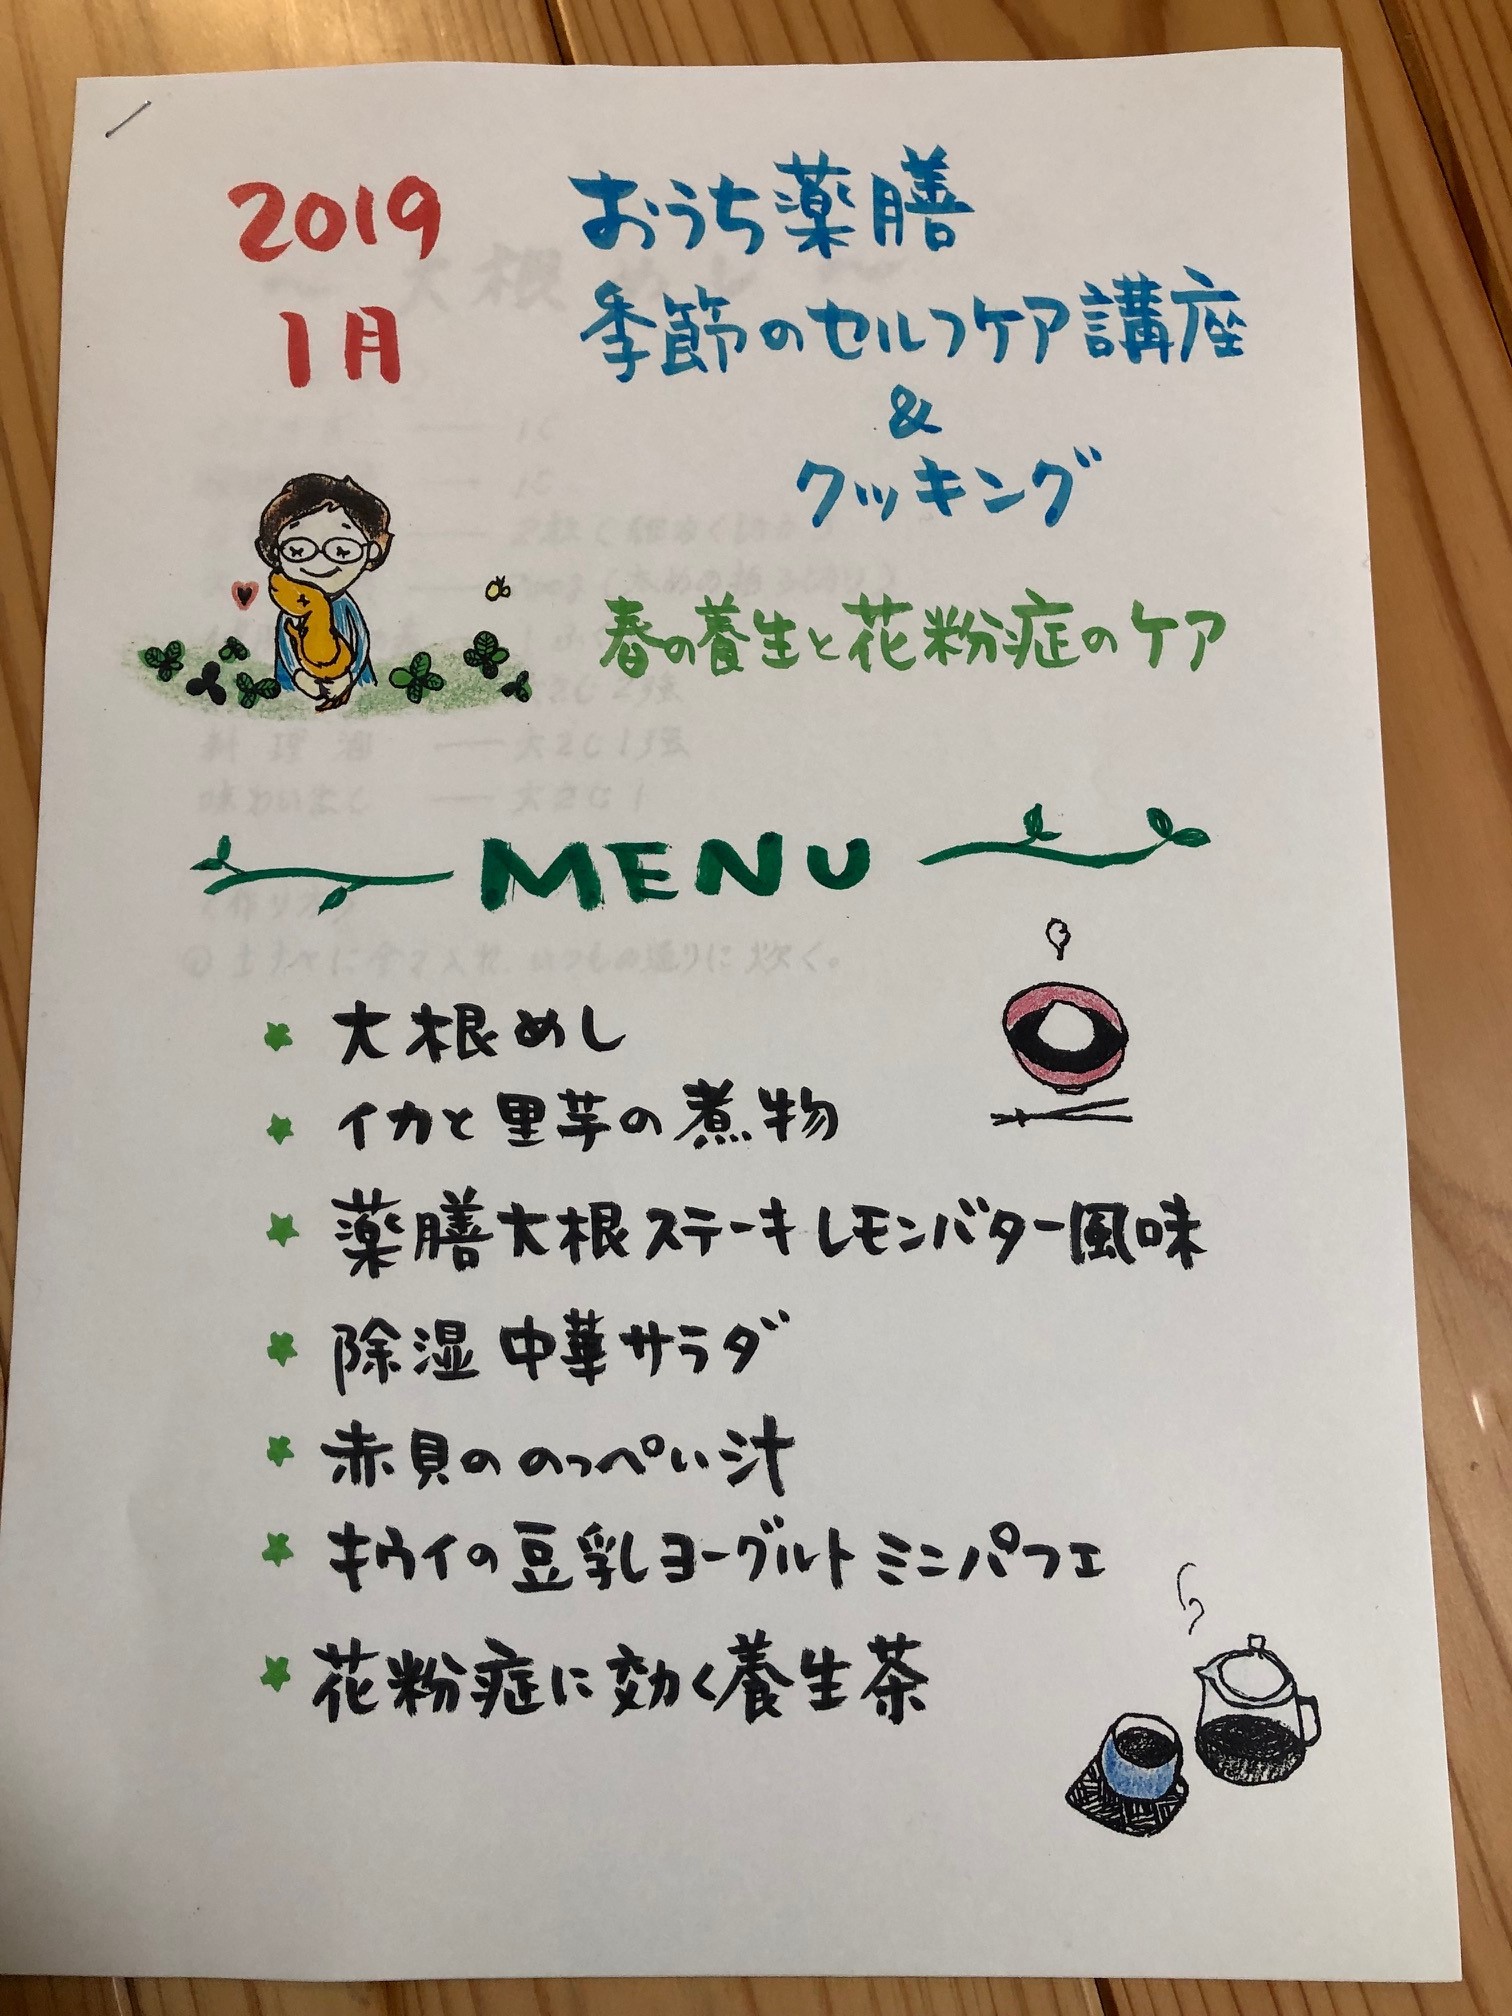 2019
1月
おうち薬膳
季節のセルフケア講座
&
クッキング
春の養生と花粉症のケア
MENU
大根めし
イカと里芋の煮物
薬膳大根ステーキレモンバター風味
除湿中華サラダ
赤貝ののっぺい汁
キウイの豆乳ヨーグルトミニパフェ
花粉症に効く養生茶